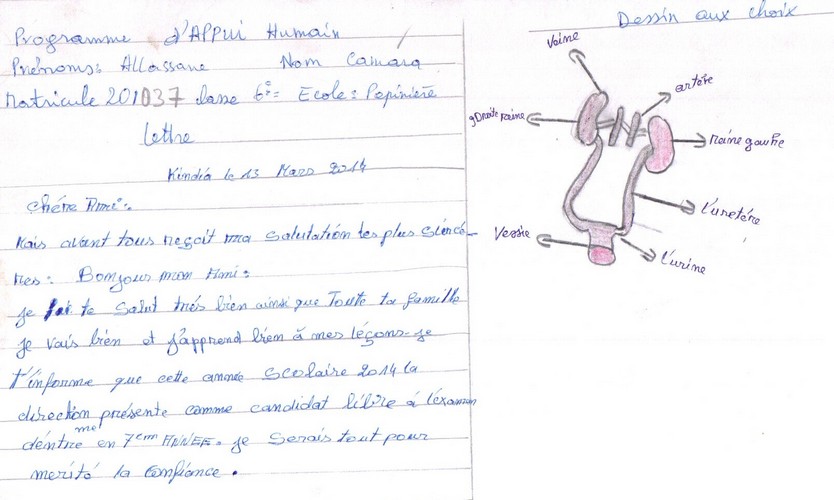 Programme d'APPUi Humain
Prénoms: Allassane Nom Camara
Matricule 201037 classe 6è= Ecole: Pepinière
Lettre
Kindia le 13 Mars 2014
chére Ami:
Mais avant tous reçoit ma salutation les plus sincé-
res: Bonjour mon Ami:
je te salut trés bien ainsi que Toute ta famille
je vais bien et j'apprend bien à mes leçons. je
t'informe que cette année scolaire 2014 la
direction me présente comme candidat libre à l'examan
d'entre en 7em ANNEE. je serais tout pour
merité la confiance.
Dessin aux choix
Veine
artére
Droite raine
raine gauche
l'uretére
Vessie
l'urine